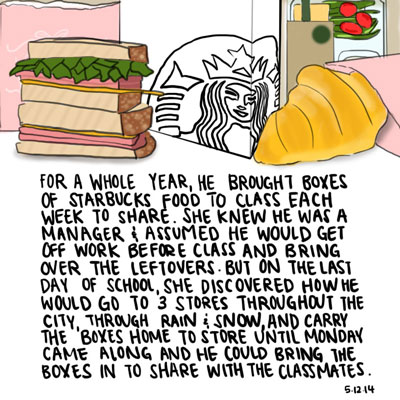 FOR A WHOLE YEAR, HE BROUGHT BOXES
OF STARBUCKS FOOD TO CLASS EACH
WEEK TO SHARE. SHE KNEW HE WAS A
MANAGER & ASSUMED HE WOULD GET
OFF WORK BEFORE CLASS AND BRING
OVER THE LEFTOVERS. BUT ON THE LAST
DAY OF SCHOOL, SHE DISCOVERED HOW HE
WOULD GO TO 3 STORES THROUGHOUT THE
CITY, THROUGH RAIN & SNOW, AND CARRY
THE BOXES HOME TO STORE UNTIL MONDAY
CAME ALONG AND HE COULD BRING THE
BOXES IN TO SHARE WITH THE CLASSMATES.
5.12.14